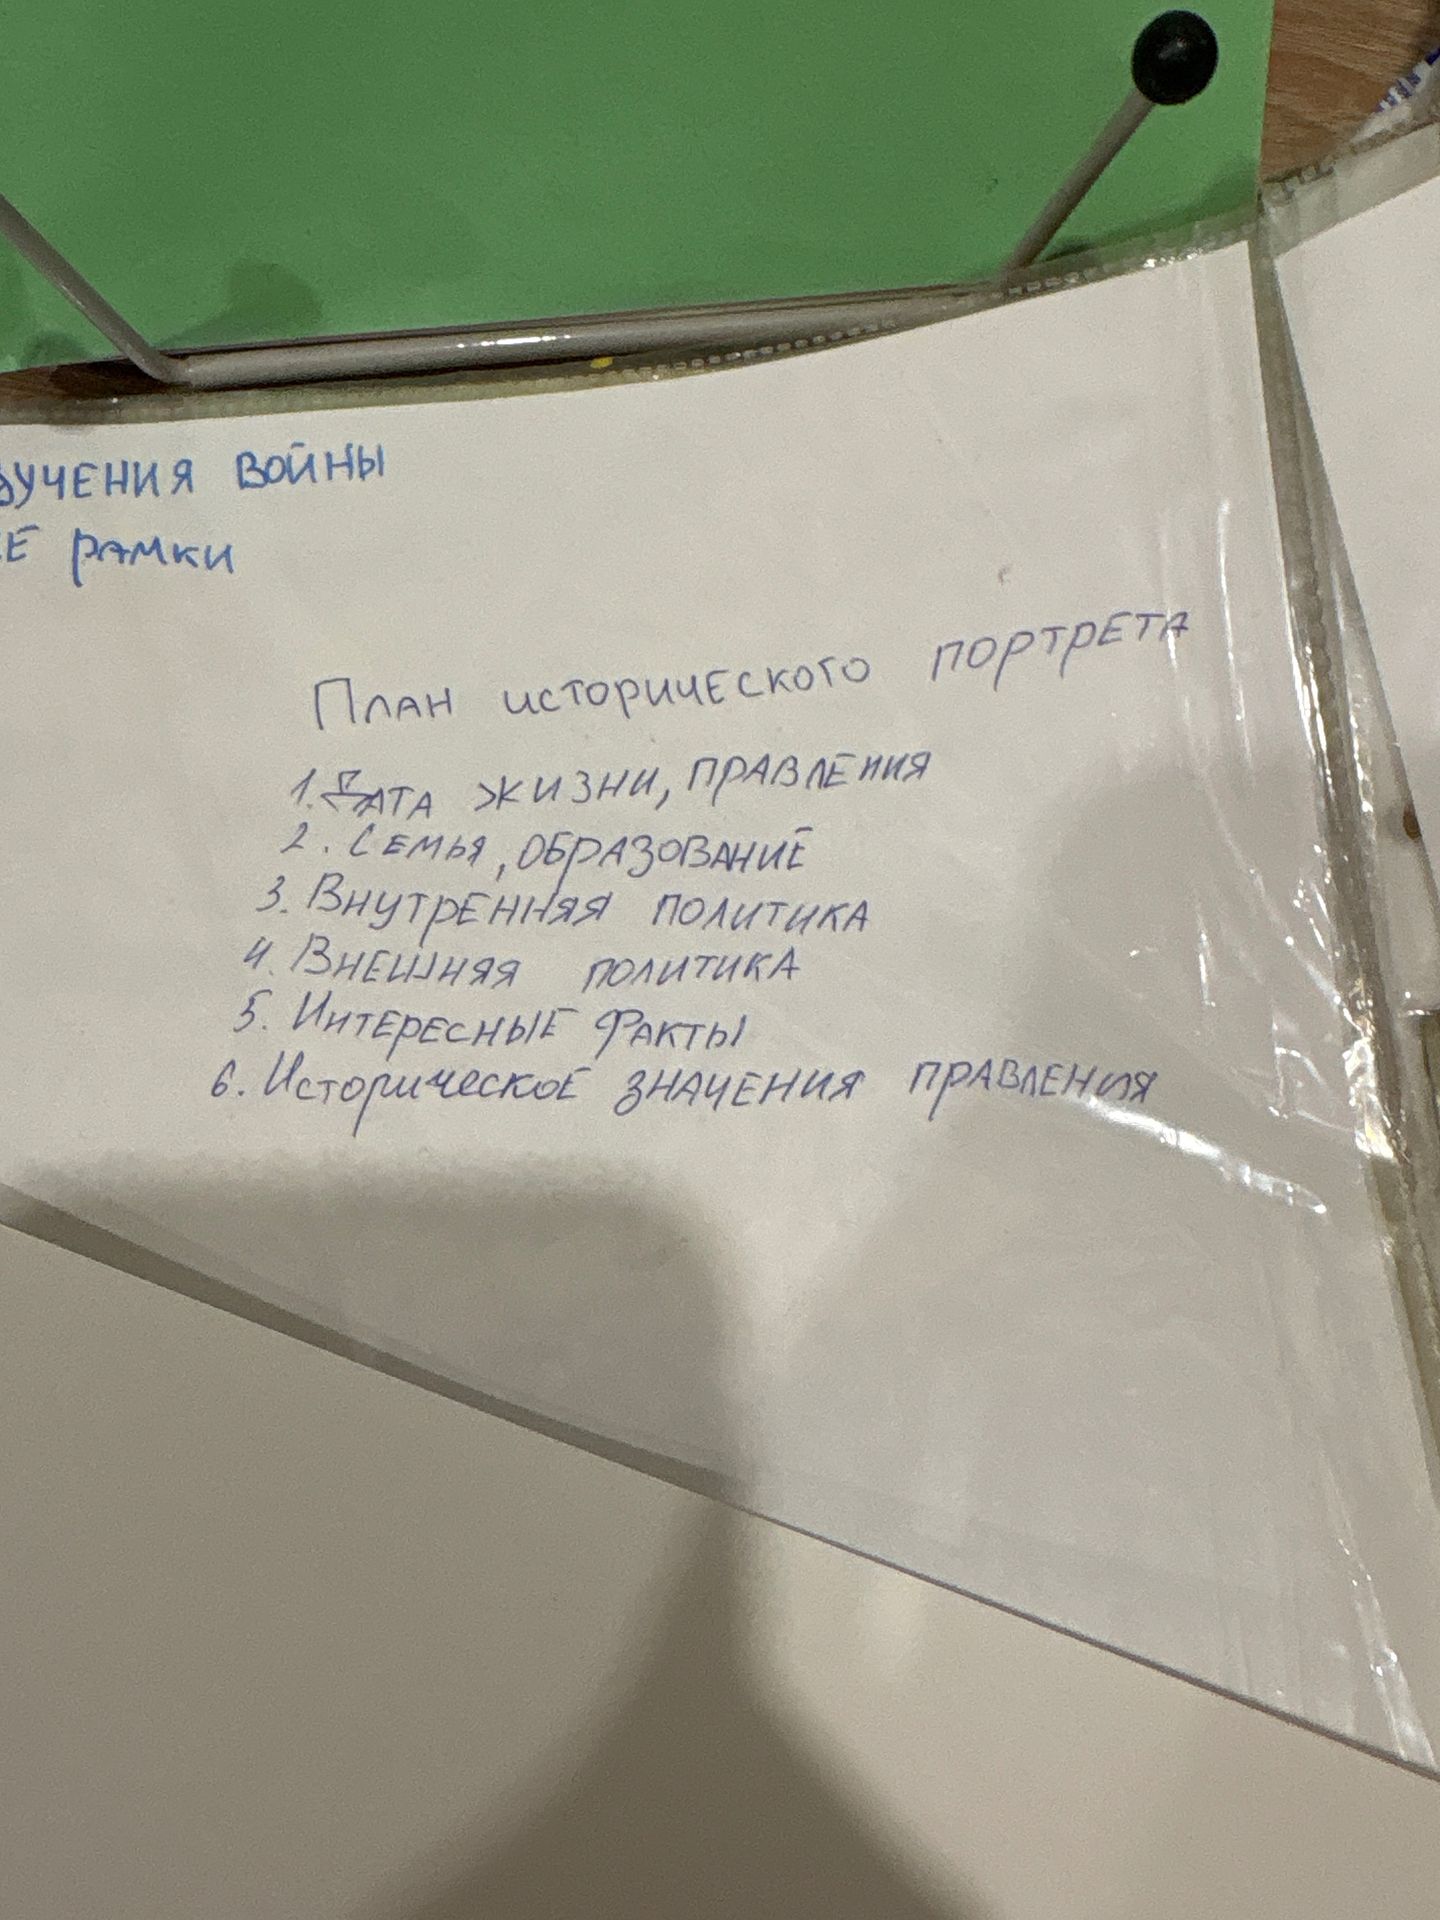 ВОЙНЫ
РАМКИ
План исторического портрета
1. Дата жизни, правления
2. Семья, образование
3. Внутренняя политика
4. Внешняя политика
5. Интересные факты
6. Историческое значения правления